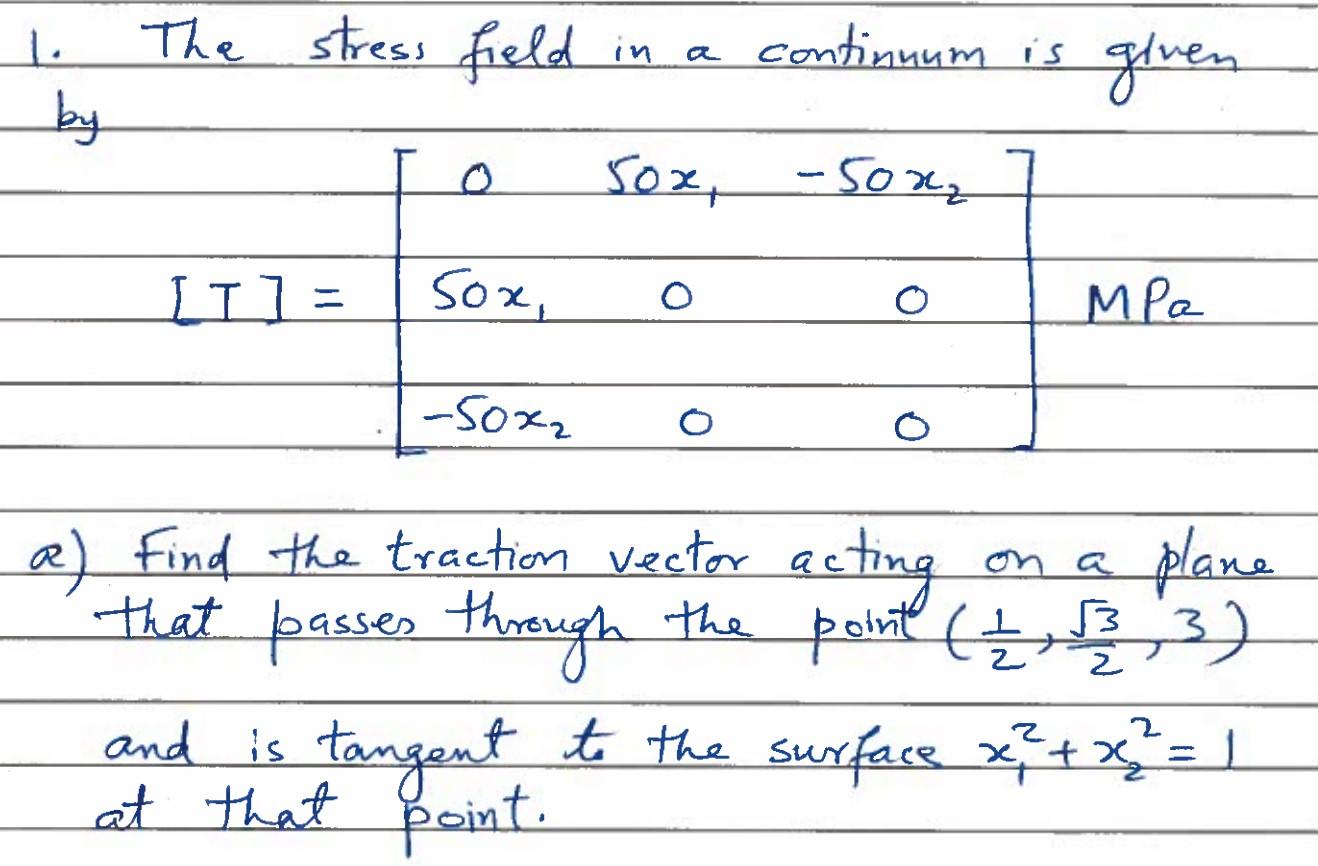 1. The stress field in a continuum is given
by
0 50x₁ -50x₂
[T] = 50x₁ 0 0 MPa
-50x₂ 0 0
a) Find the traction vector acting on a plane
that passes through the point (1/2, √3/2, 3)
and is tangent to the surface x₁² + x₂² = 1
at that point.